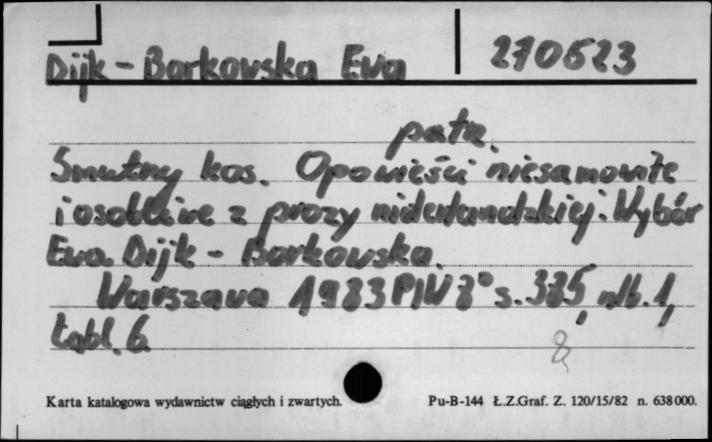 Dijk - Borkowska Ewa 270623
patrz.
Smutny kos. Opowieści niesamowite
i osobliwe z prozy niderlandzkiej. Wybór
Ewa Dijk - Borkowska.
Warszawa 1983 PIW 8° s. 385, nlb. 1,
tabl. 6
8
Karta katalogowa wydawnictw ciągłych i zwartych. Pu-B-144 Ł.Z.Graf. Z. 120/15/82 n. 638000.